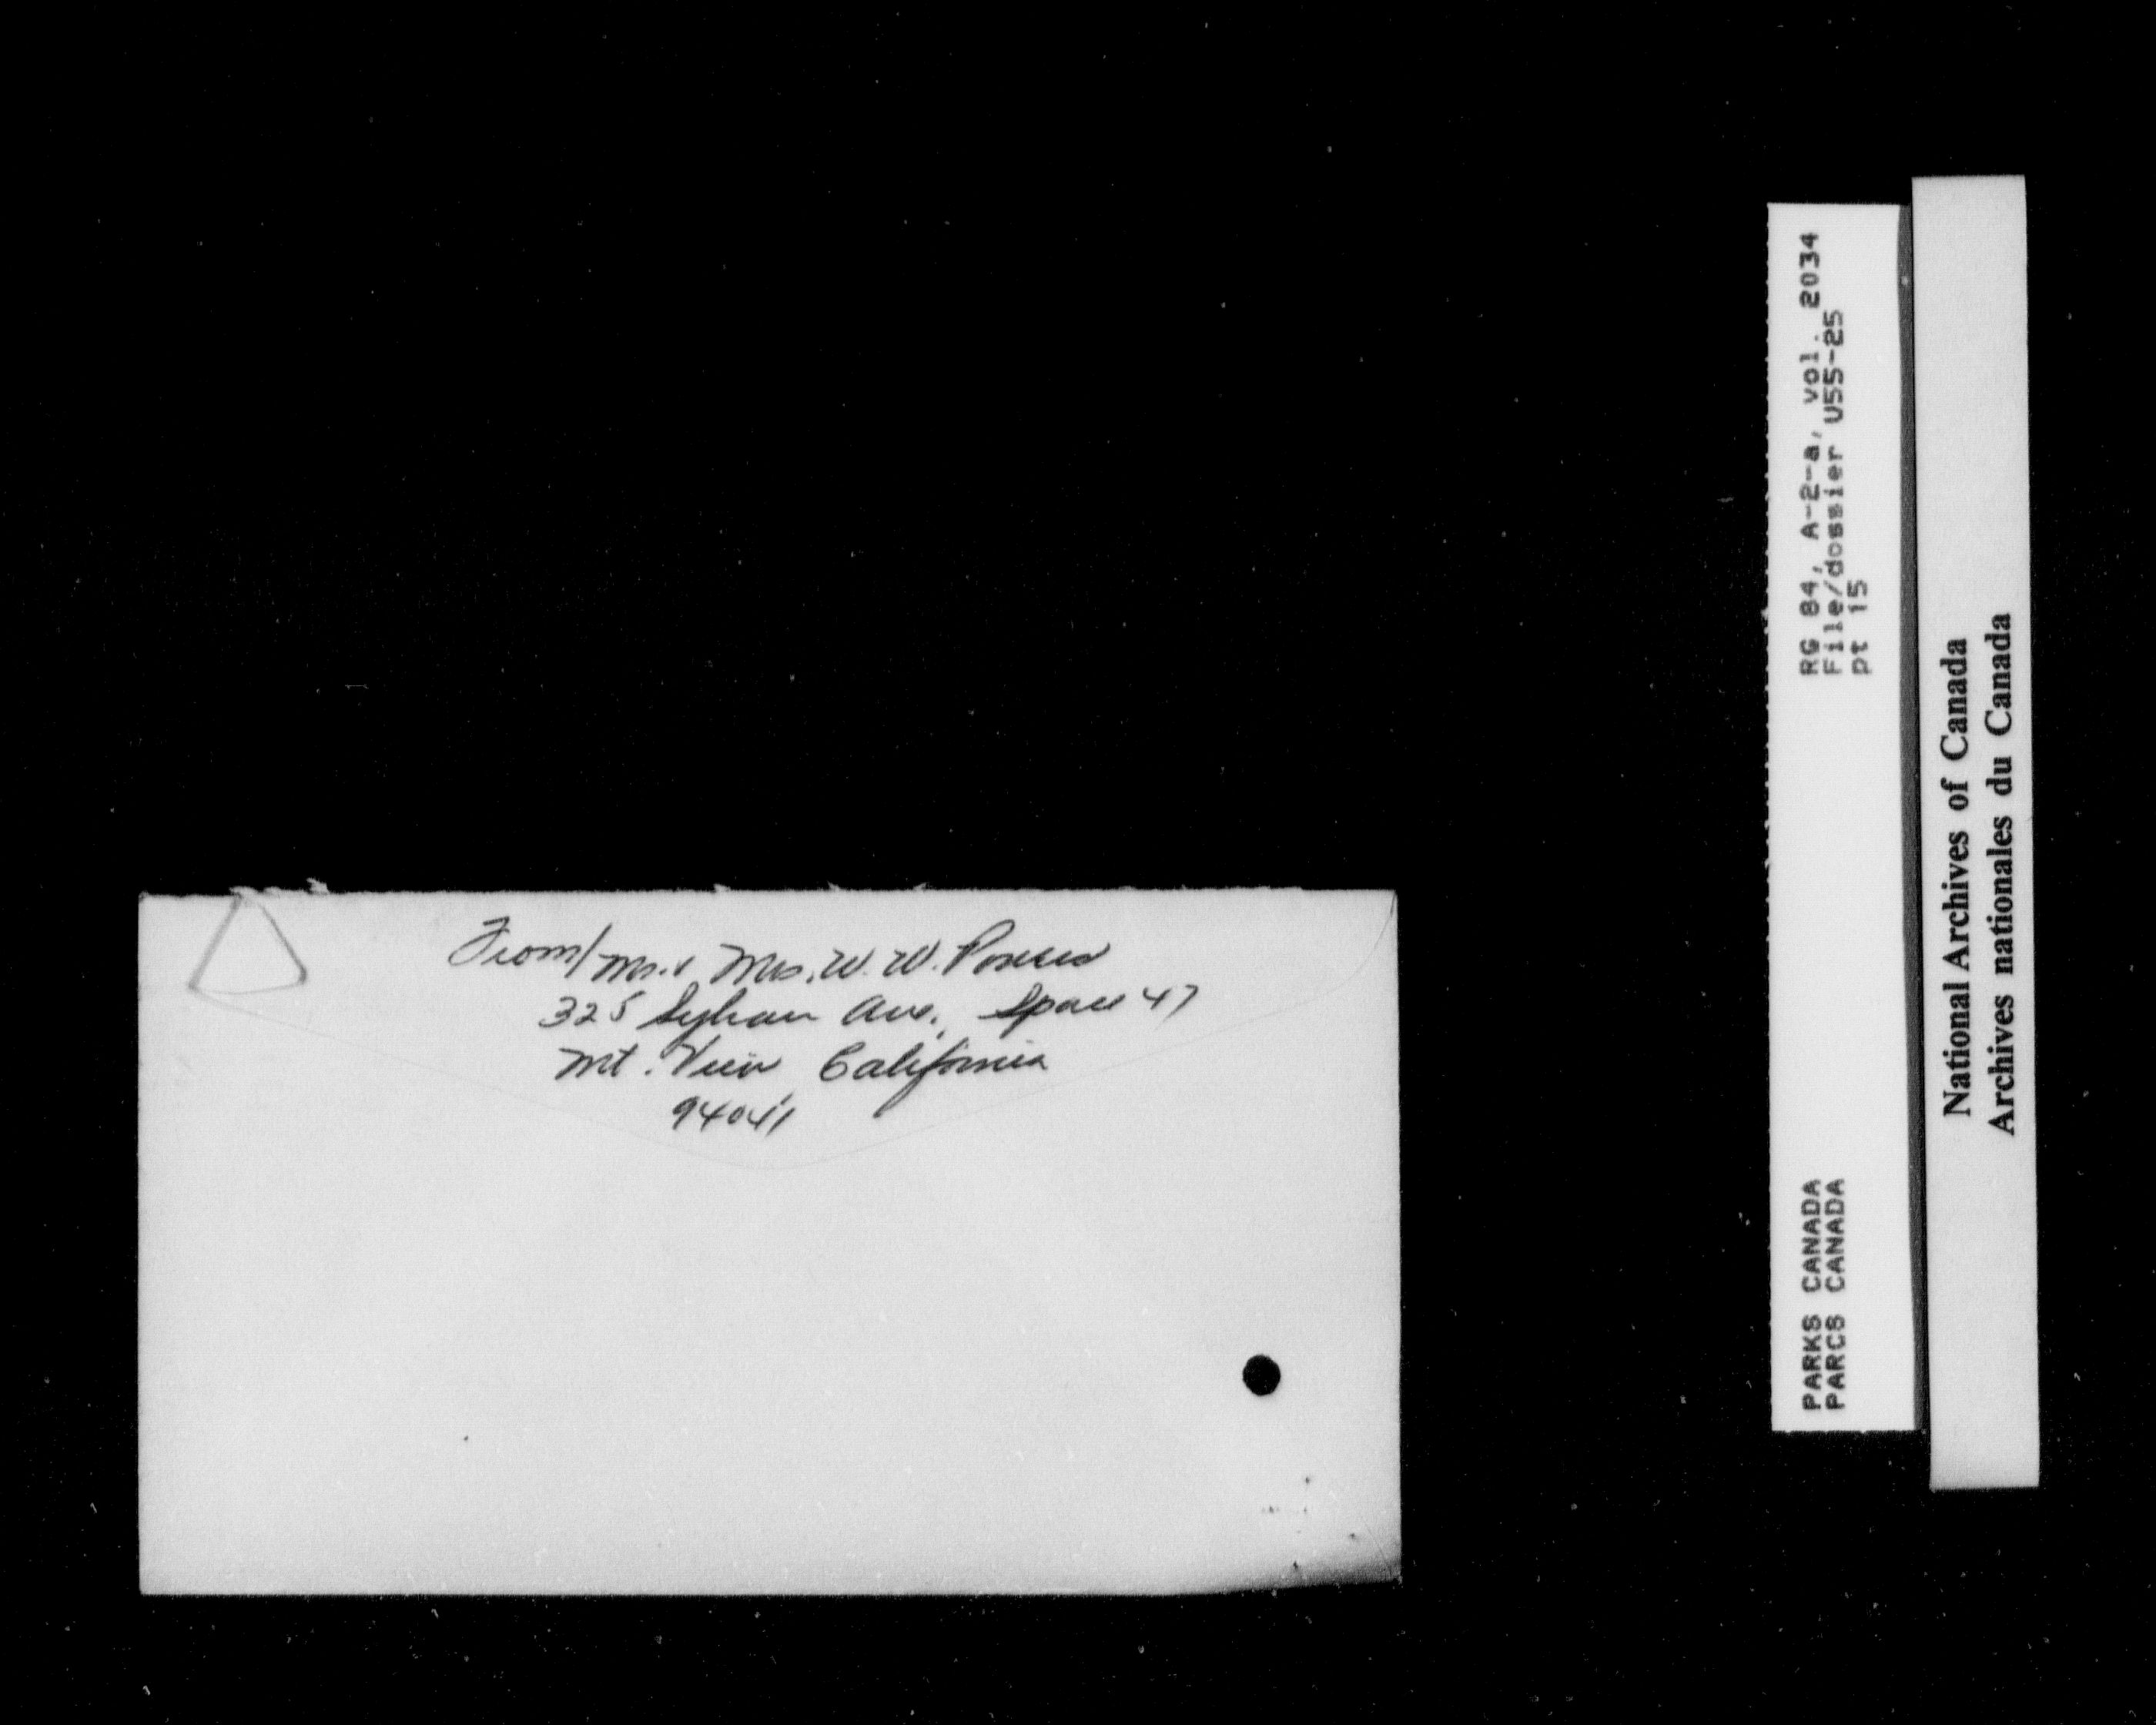 From/ Mr. & Mrs. W. W.
325 Sylvan Ave. Space 47
Mt. View California
94041
RG 84, A-2-a, vol. 2034
File/dossier U55-25
pt 15
PARKS CANADA
PARCS CANADA
National Archives of Canada
Archives nationales du Canada